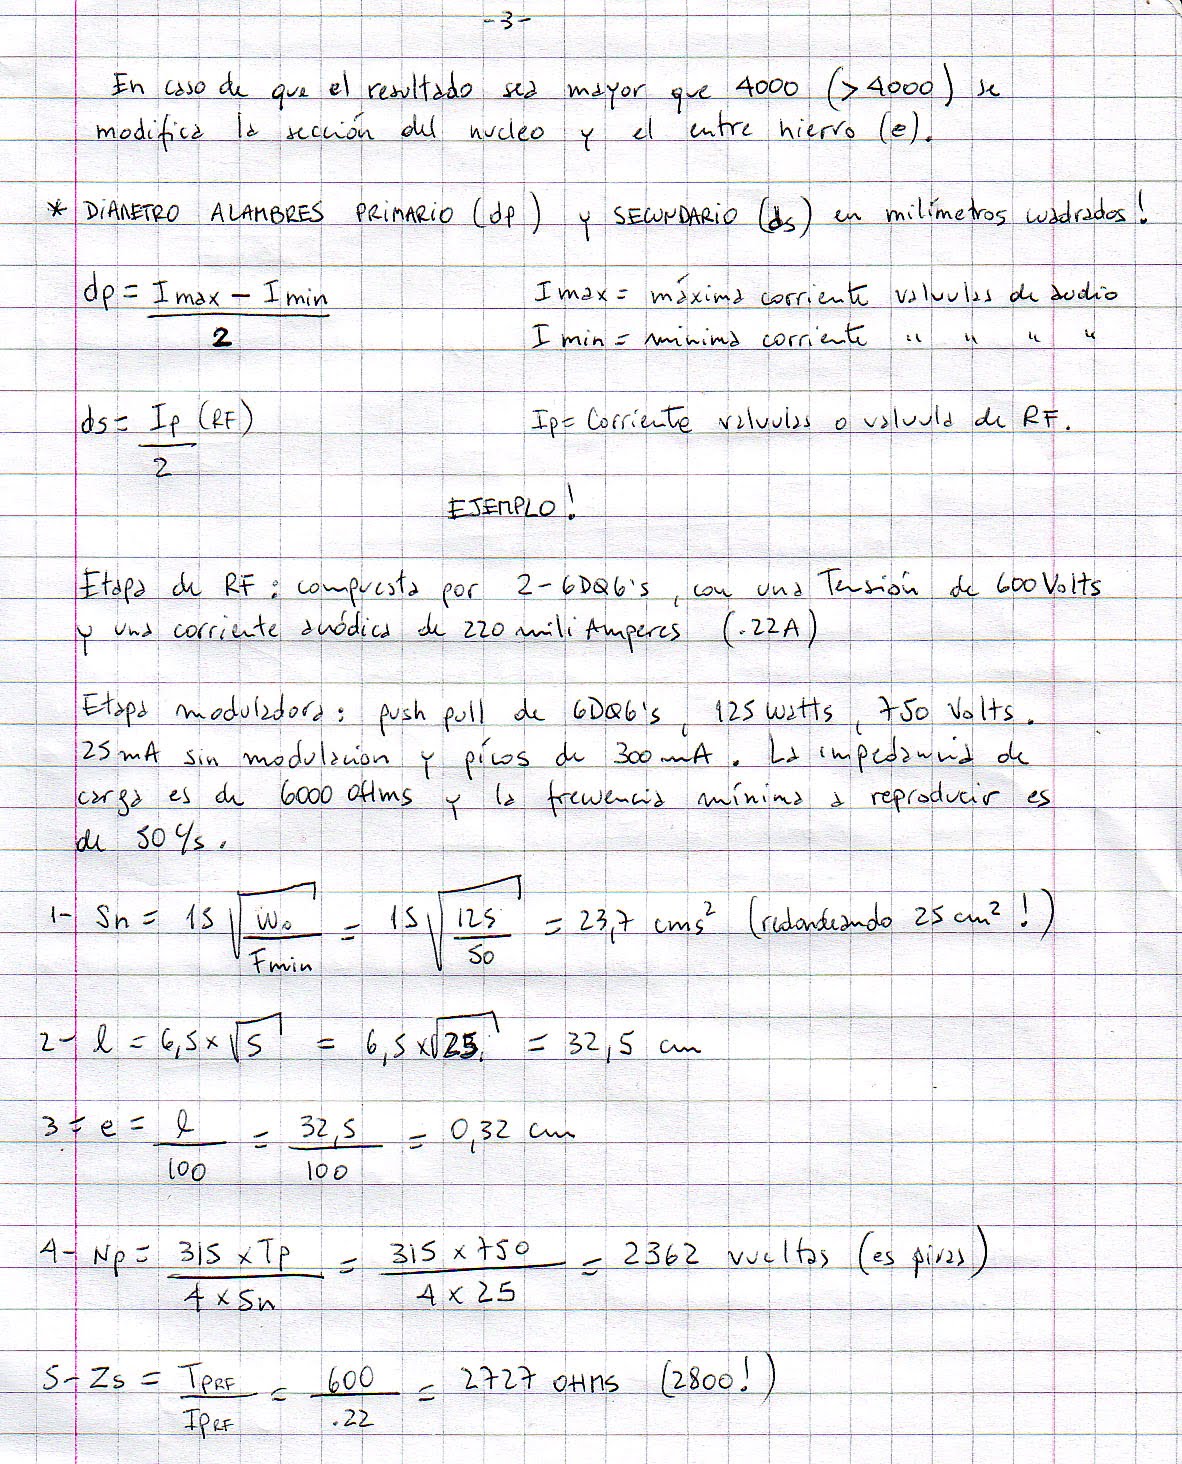 -3-
En caso de que el resultado sea mayor que 4000 (>4000) se
modifica la sección del nucleo y el entre hierro (e).
* DIAMETRO ALAMBRES PRIMARIO (dp) y SECUNDARIO (ds) en milímetros cuadrados!
dp = Imax - Imin / 2
Imax = máxima corriente valvulas de audio
Imin = minima corriente " " " "
ds = Ip (RF) / 2
Ip = Corriente valvulas o valvula de RF.
EJEMPLO!
Etapa de RF: compuesta por 2-6DQ6's, con una Tensión de 600 Volts
y una corriente anódica de 220 mili Amperes (.22A)
Etapa moduladora: push pull de 6DQ6's, 125 watts, 750 Volts.
25 mA sin modulacion y picos de 300 mA. La impedancia de
carga es de 6000 OHms y la frecuencia mínima a reproducir es
de 50 c/s.
1- Sn = 15 √ Wo / Fmin = 15 √ 125 / 50 = 23,7 cms² (redondeando 25 cm²!)
2- l = 6,5 x √S = 6,5 x √25 = 32,5 cm
3- e = l / 100 = 32,5 / 100 = 0,32 cm
4- Np = 315 x Tp / 4 x Sn = 315 x 750 / 4 x 25 = 2362 vueltas (espiras)
5- Zs = TPRF / IPRF = 600 / .22 = 2727 OHMS (2800!)